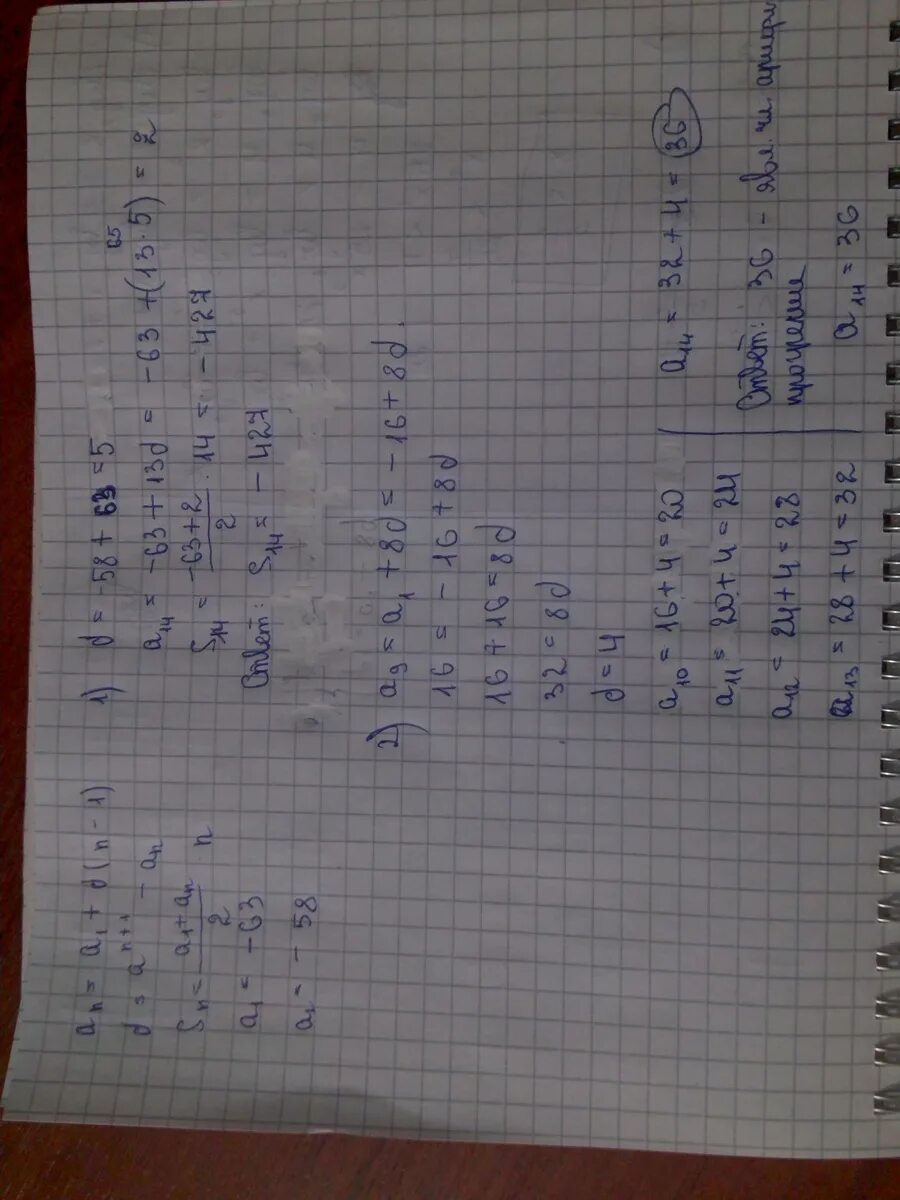 aₙ = a₁ + d(n - 1)
d = aⁿ⁺¹ - aₙ
Sₙ = (a₁ + aₙ)/2 · n
a₁ = -63
a₂ = -58
1) d = -58 + 63 = 5
65
a₁₄ = -63 + 13d = -63 + (13 · 5) = 2
S₁₄ = (-63 + 2)/2 · 14 = -427
Ответ: S₁₄ = -427
2) a₉ = a₁ + 8d = -16 + 8d.
16 = -16 + 8d
16 + 16 = 8d
32 = 8d
d = 4
a₁₀ = 16 + 4 = 20
a₁₁ = 20 + 4 = 24
a₁₂ = 24 + 4 = 28
a₁₃ = 28 + 4 = 32
a₁₄ = 32 + 4 = 36
Ответ: 36 - явл. чл. арифм
прогрессии
a₁₄ = 36